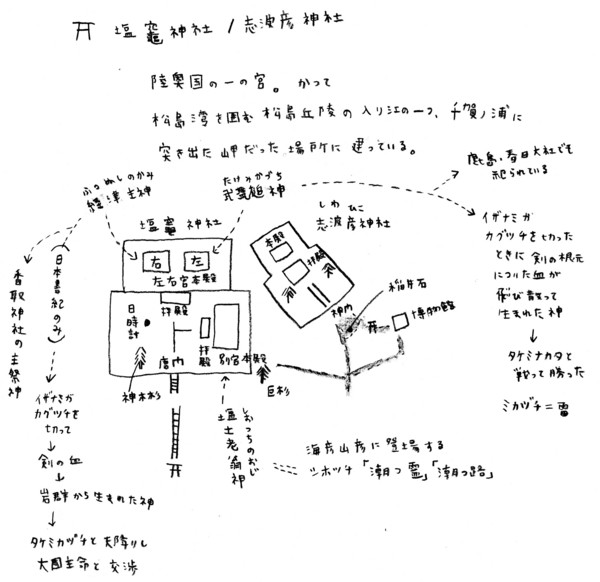 塩竈神社 / 志波彦神社
陸奥国の一の宮。かつて
松島湾を囲む松島丘陵の入り江の一つ、千賀ノ浦に
突き出た岬だった場所に建っている。
ふつぬしのかみ
經津主神
たけみかづち
武甕槌神
鹿島・春日大社でも
祀られている
塩竈神社
右
左
左右宮本殿
日時計
拝殿
拝殿
別宮本殿
唐門
神木杉
しわひこ
志波彦神社
本殿
拝殿
稲井石
神門
博物館
巨杉
しおつちのおじ
塩土老翁神
海彦山彦に登場する
シホツチ「潮つ霊」「潮つ路」
イザナミが
カグツチを切った
ときに剣の根元
についた血が
飛び散って
生まれた神
タケミナカタと
戦って勝った
ミカヅチ=雷
(日本書紀のみ)
香取神社の主祭神
イザナミが
カグツチを
切って
剣の血
岩群から生まれた神
タケミカヅチと天降りし
大国主命と交渉